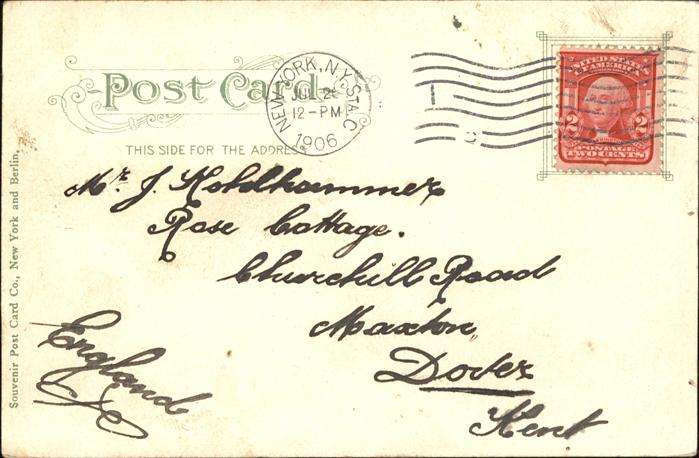 Post Card.
NEW YORK, N.Y. STA. C
JUL 2
12-PM
1906
UNITED STATES
OF AMERICA
2 2
POSTAGE
TWO CENTS
THIS SIDE FOR THE ADDRESS
Mr. J.
Rose Cottage.
Churchill Road
Maxton
Dover
Kent
England
Souvenir Post Card Co., New York and Berlin.